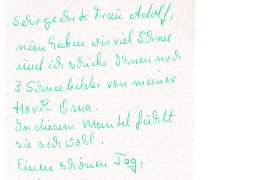 Sehr geehrte Frau Adolf,
nun haben wir viel Schnee
und ich schicke Ihnen noch
3 Schneebilder von meiner
Oma.
In diesem Mantel fühlt
sie sich wohl.
Einen schönen Tag,